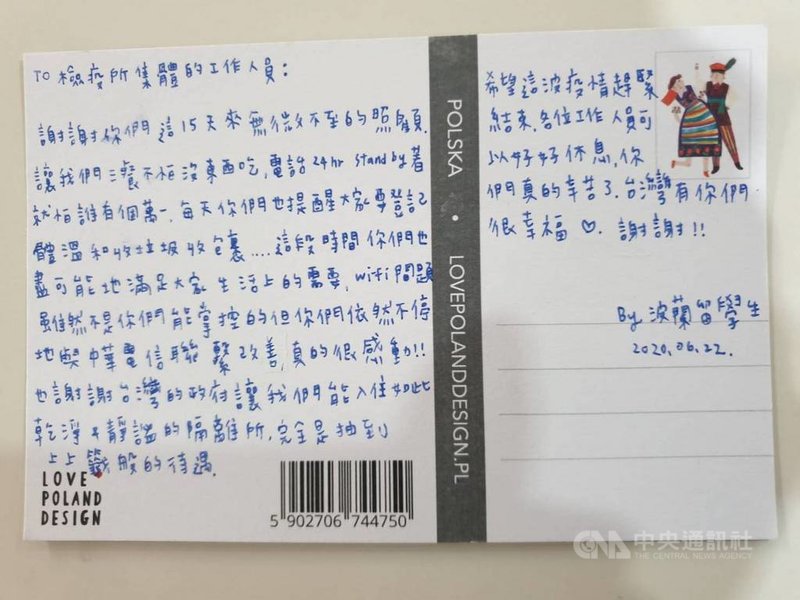 TO 檢疫所集體的工作人員：
謝謝你們這15天來無微不至的照顧,
讓我們三餐不怕沒東西吃,電話24hr stand by著
就怕誰有個萬一,每天你們也提醒大家要登記
體溫和收垃圾收包裹....這段時間你們也
盡可能地滿足大家生活上的需要,wifi問題
雖然不是你們能掌控的但你們依然不停
地與中華電信聯繫改善,真的很感動!!
也謝謝台灣的政府讓我們能入住如此
乾淨&靜謐的隔離所,完全是抽到
上上籤般的待遇.
LOVE
POLAND
DESIGN
5 902706 744750
POLSKA
LOVEPOLANDDESIGN.PL
希望這波疫情趕緊
結束,各位工作人員可
以好好休息,你
們真的辛苦了.台灣有你們
很幸福♡. 謝謝!!
By 波蘭留學生
2020.06.22.
CNA 中央通訊社
THE CENTRAL NEWS AGENCY